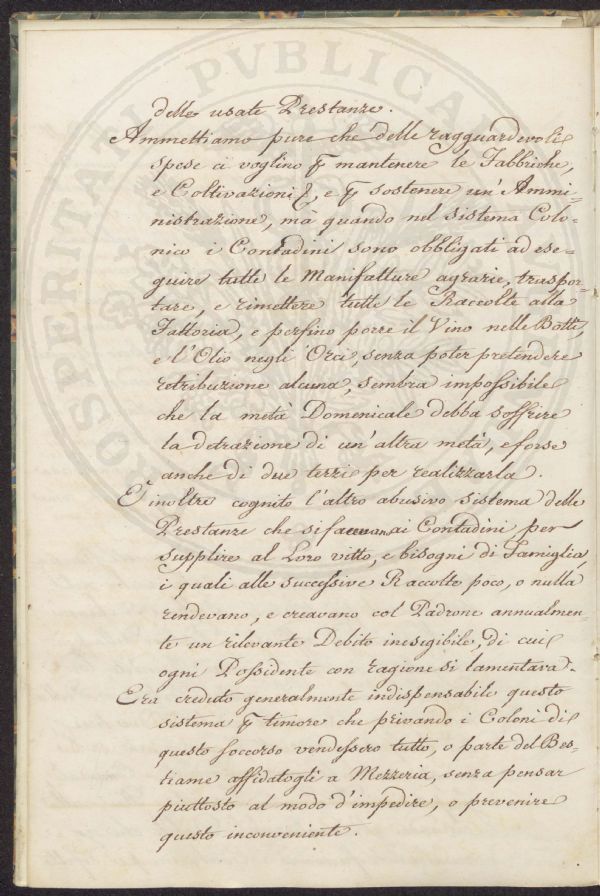 delle usate Prestanze.
Ammettiamo pure che delle ragguardevoli
spese ci voglino p mantenere le Fabbriche,
e Coltivazioni, e p sostenere un' Ammi-
nistrazione, mà quando nel sistema Colo-
nico i Contadini sono obbligati ad ese-
guire tutte le Manifatture agrarie, traspor-
tare, e rimettere tutte le Raccolte alla
Fattoria, e perfino porre il Vino nelle Botti,
e l'Olio negli Orci, senza poter pretendere
retribuzione alcuna, sembra impossibile
che la metà Domenicale debba soffrire
la detrazione di un' altra metà, e forse
anche di due terzi per realizzarla.
È inoltre cognito l'altro abusivo sistema delle
Prestanze che si facevano ai Contadini per
supplire al Loro vitto, e bisogni di Famiglia,
i quali alle successive Raccolte poco, o nulla
rendevano, e creavano col Padrone annualmen-
te un rilevante Debito inesigibile, di cui
ogni Possidente con ragione si lamentava.
Era creduto generalmente indispensabile questo
sistema p timore che privando i Coloni di
questo soccorso vendessero tutto, o parte del Bes-
tiame affidatogli a Mezzeria, senza pensar
piuttosto al modo d'impedire, o prevenire
questo inconveniente.
PROSPERITATI PVBLICAE